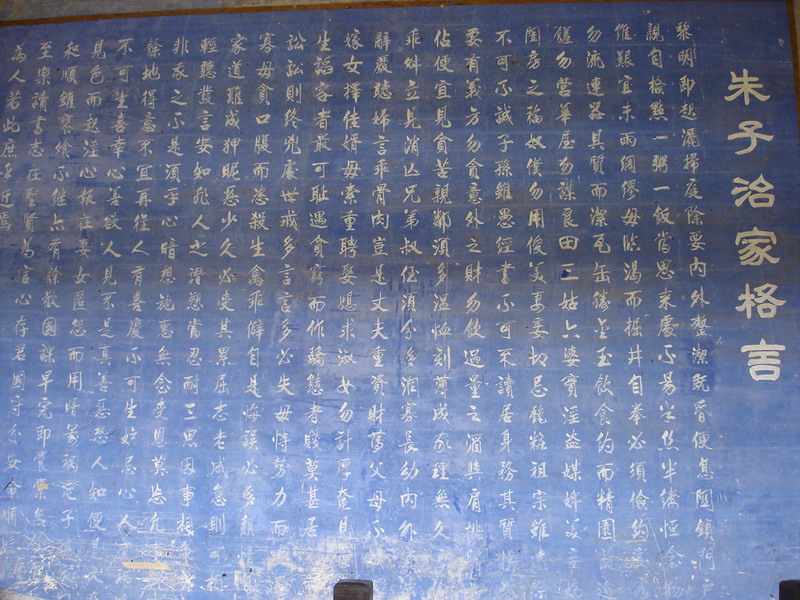 朱子治家格言
黎明即起灑掃庭除要內外整潔既昏便息關鎖門戶
親自檢點一粥一飯當思來處不易半絲半縷恒念物
維艱宜未雨綢繆毋臨渴而掘井自奉必須儉約
勿流連器具質而潔瓦缶勝金玉飲食約而精園
勿營華屋勿謀良田三姑六婆實淫盜媒婢美妾
閨房之福奴僕勿用俊美妻妾切忌艷粧祖宗雖
不可不誠子孫雖愚經書不可不讀居身務其質
要有義方勿貪意外之財勿飲過量之酒與肩挑
佔便宜見貧苦親鄰須多溫恤刻薄成家理無久
乖舛立見消亡兄弟叔侄須分多潤寡長幼內外
辭嚴聽婦言乖骨肉豈是丈夫重資財薄父母不
嫁女擇佳婿毋索重聘娶媳求淑女勿計厚奩見
生諂容者最可恥遇貧窮而作驕態者賤莫甚居
訟訟則終凶處世戒多言言多必失毋恃勢力而
寡毋貪口腹而恣殺生禽乖僻自是悔誤必多頹惰
家道難成狎昵惡少久必受其累屈志老成急則可
輕聽發言安知非人之譖愬當忍耐三思因事相
非我之不是須平心暗想施惠無念受恩莫忘凡
餘地得意不宜再往人有喜慶不可生妒忌心人
不可生喜幸心善欲人見不是真善惡恐人知便
見色而起淫心報在妻女匿怨而用暗箭禍延子
和順雖饔飧不繼亦有餘歡國課早完即囊橐無
至樂讀書志在聖賢為官心存君國守分安命順
為人若此庶乎近焉